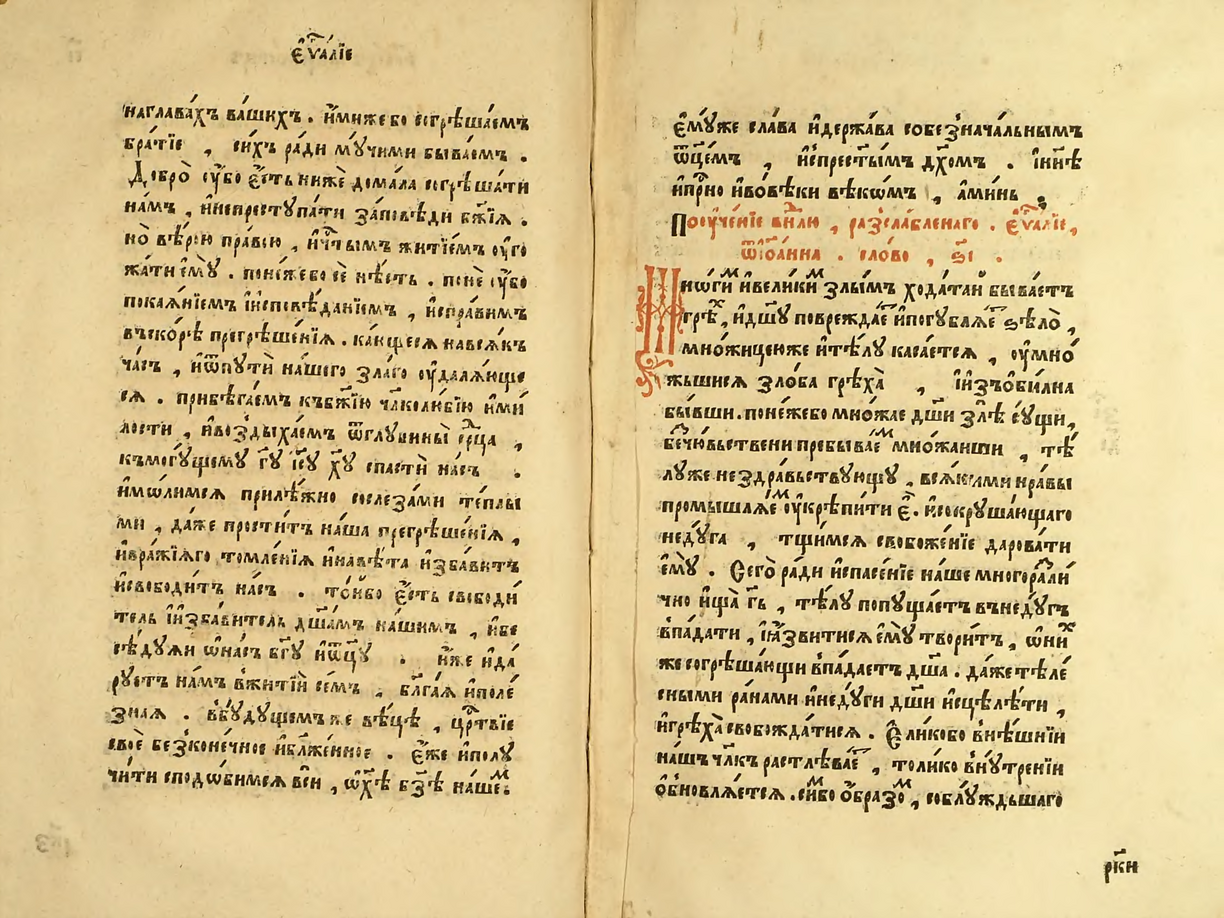 є҆ѵⷢ҇а́лїе
наглава́хъ ва́шихъ . и҆́мижебо согрѣша́емъ
бра́тїе , си́хъ ра́ди мꙋ́чими быва́емъ .
Добро̀ ᲂу҆́бо є҆́сть нижѐ дома́ла согрѣша́ти
на́мъ , и҆непрестꙋпа́ти за́повѣди бж҃їѧ .
но вѣ́рою пра́вою , и҆чⷭ҇тымъ житїе́мъ ᲂу҆го
жа́ти є҆мꙋ̀ . поне́жебо се нѣ́сть . понѐ ᲂу҆́бо
покаѧ́нїемъ і҆и҆сповѣ́данїемъ , и҆спра́вимъ
въско́рѣ прегрѣше́нїѧ . ка́ющесѧ навсѧ́къ
ча́съ , и҆ѿпꙋтѝ на́шего зла́го ᲂу҆далѧ́юще
сѧ . прибѣга́емъ къбж҃їю чл҃колю́бїю и҆ми́
лости , и҆воздыха́емъ ѿглꙋбины̀ срⷣца ,
къмогꙋ́щемꙋ гⷭ҇ꙋ і҆сꙋ хⷭ҇ꙋ спастѝ на́съ .
и҆мо́лимсѧ прилѣ́жно сослеза́ми те́плы
ми , да́же прости́тъ на́ша прегрѣше́нїѧ ,
и҆вра́жїѧго томле́нїѧ и҆навѣ́та и҆зба́витъ
и҆свободи́тъ на́съ . то́ибо є҆́сть свободи́
тель і҆и҆зба́витель дш҃а́мъ на́шимъ , и҆бе
сѣ́дꙋѧи ѡ҆на́съ бг҃ꙋ и҆ѿц҃ꙋ . и҆́же и҆да́
рꙋетъ на́мъ вжитїи се́мъ , бл҃га́ѧ и҆поле́
знаѧ . вбꙋ́дꙋщемъже вѣ́цѣ , црⷭ҇твїе
своѐ безконе́чное и҆бл҃же́нное . є҆́же и҆полꙋ
чи́ти сподо́бимсѧ всѝ , ѡ҆хⷭ҇ѣ бз҃ѣ на́шеⷨ .
є҆мꙋ́же сла́ва и҆держа́ва собезнача́льнымъ
ѿц҃емъ , и҆спрест҃ы́мъ дх҃омъ . і҆ны́нѣ
и҆прⷭ҇но и҆вовѣ́ки вѣкѡ́мъ , а҆ми́нь .
Поᲂуче́нїе внⷣлю , разсла́бленаго . є҆ѵⷢ҇а́лїе ,
ѿі҆оа́нна . сло́во , ѕ҃і .
Мно́гиⷨ и҆вели́киⷨ злы́мъ хода́таи быва́етъ
грѣⷯ , и҆дш҃ꙋ поврежда́еⷮ и҆погꙋблѧ́еⷮ ѕѣлѡ̀ ,
мно́жиценюже и҆тѣ́лꙋ каса́етсѧ , ᲂу҆мно́
жьшисѧ зло́ба грѣха̀ , і҆и҆зъоби́лна
бы́вши . поне́жебо мно́жае дш҃и злѣ̀ сꙋ́щи ,
бе́счювьствени пребыва́еⷨ мно́жаиши , тѣ́
лꙋже нездра́вьствꙋющꙋ , всѧ́кими нра́вы
промышлѧ́еⷨ ᲂу҆крѣпи́ти є҆̀ . и҆сокрꙋша́ющаго
недꙋ́га , тщи́мсѧ свобоже́нїе дарова́ти
є҆мꙋ̀ . Сего̀ ра́ди и҆спасе́нїе на́ше многоразли́
чно и҆ща̀ гь҃ , тѣ́лꙋ попꙋща́етъ внедꙋ́гъ
впа́дати , і҆ꙗ҆́звитисѧ є҆мꙋ̀ твори́тъ , ѡ҆ни́хⷯ
же согрѣша́ющи впа́даетъ дш҃а . да́же тѣле́
сными ра́нами и҆недꙋ́ги дш҃и и҆сцѣлѣ́ти ,
и҆грѣха̀ свобожда́тисѧ . Є҆ли́кобо внѣ́шнїи
на́шъ чл҃къ растлѣва́еⷮ , толи́ко внꙋ́тренїи
ѡ҆бновлѧ́етсѧ . си́мбо ѻ҆́бразоⷨ , соблꙋ́ждьшаго
рк҃и